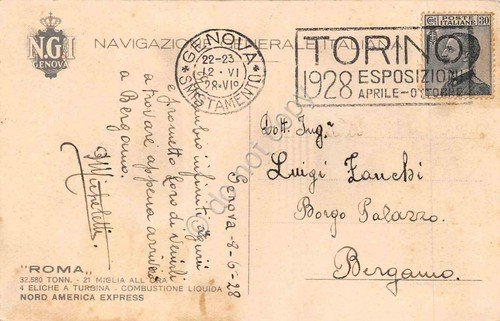 N.G.I
GENOVA
NAVIGAZIONE GENERALE ITALIANA
GENOVA
22-23
12·VI
28·VIº
SMISTAMENTO
TORINO
1928 ESPOSIZIONI
APRILE-OTTOBRE
POSTE ITALIANE
30
Genova 8-6-28
infiniti auguri
e prometto loro di venirli
a trovare appena arrivo
a Bergamo.
Dott. Ing.
Luigi Zanchi
Borgo Palazzo.
Bergamo.
"ROMA"
32.580 TONN. - 21 MIGLIA ALL'ORA
4 ELICHE A TURBINA - COMBUSTIONE LIQUIDA
NORD AMERICA EXPRESS